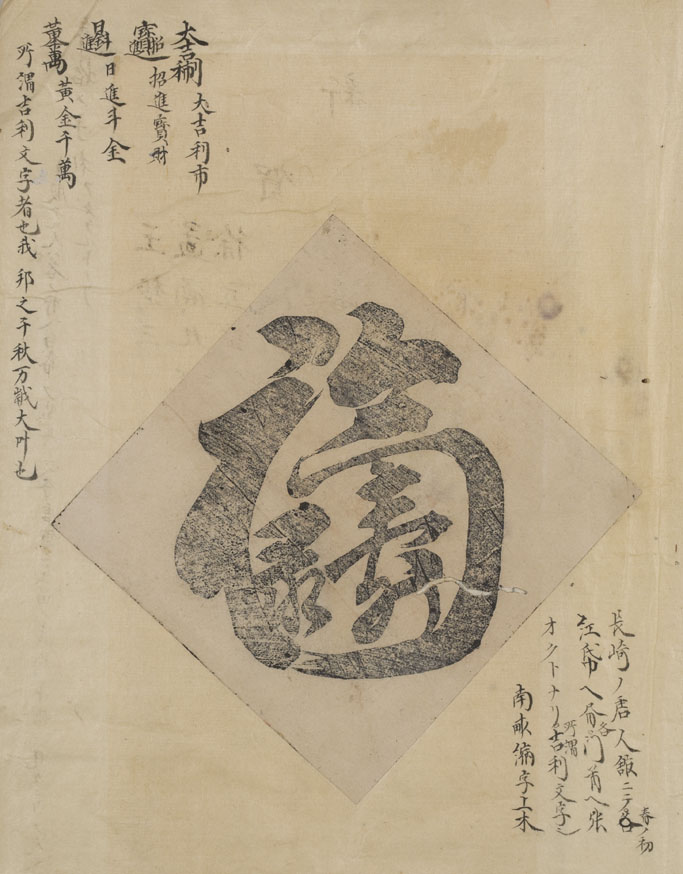 大吉利市
招進寶財
日進斗金
黄金千萬
所謂吉利文字者也我 邦之千秋万歳大叶也
長崎ノ唐人館ニテ春ノ初
紅帋ヘ 各門首ヘ张
オクトナリ所謂吉利文字
南畝縮字上木